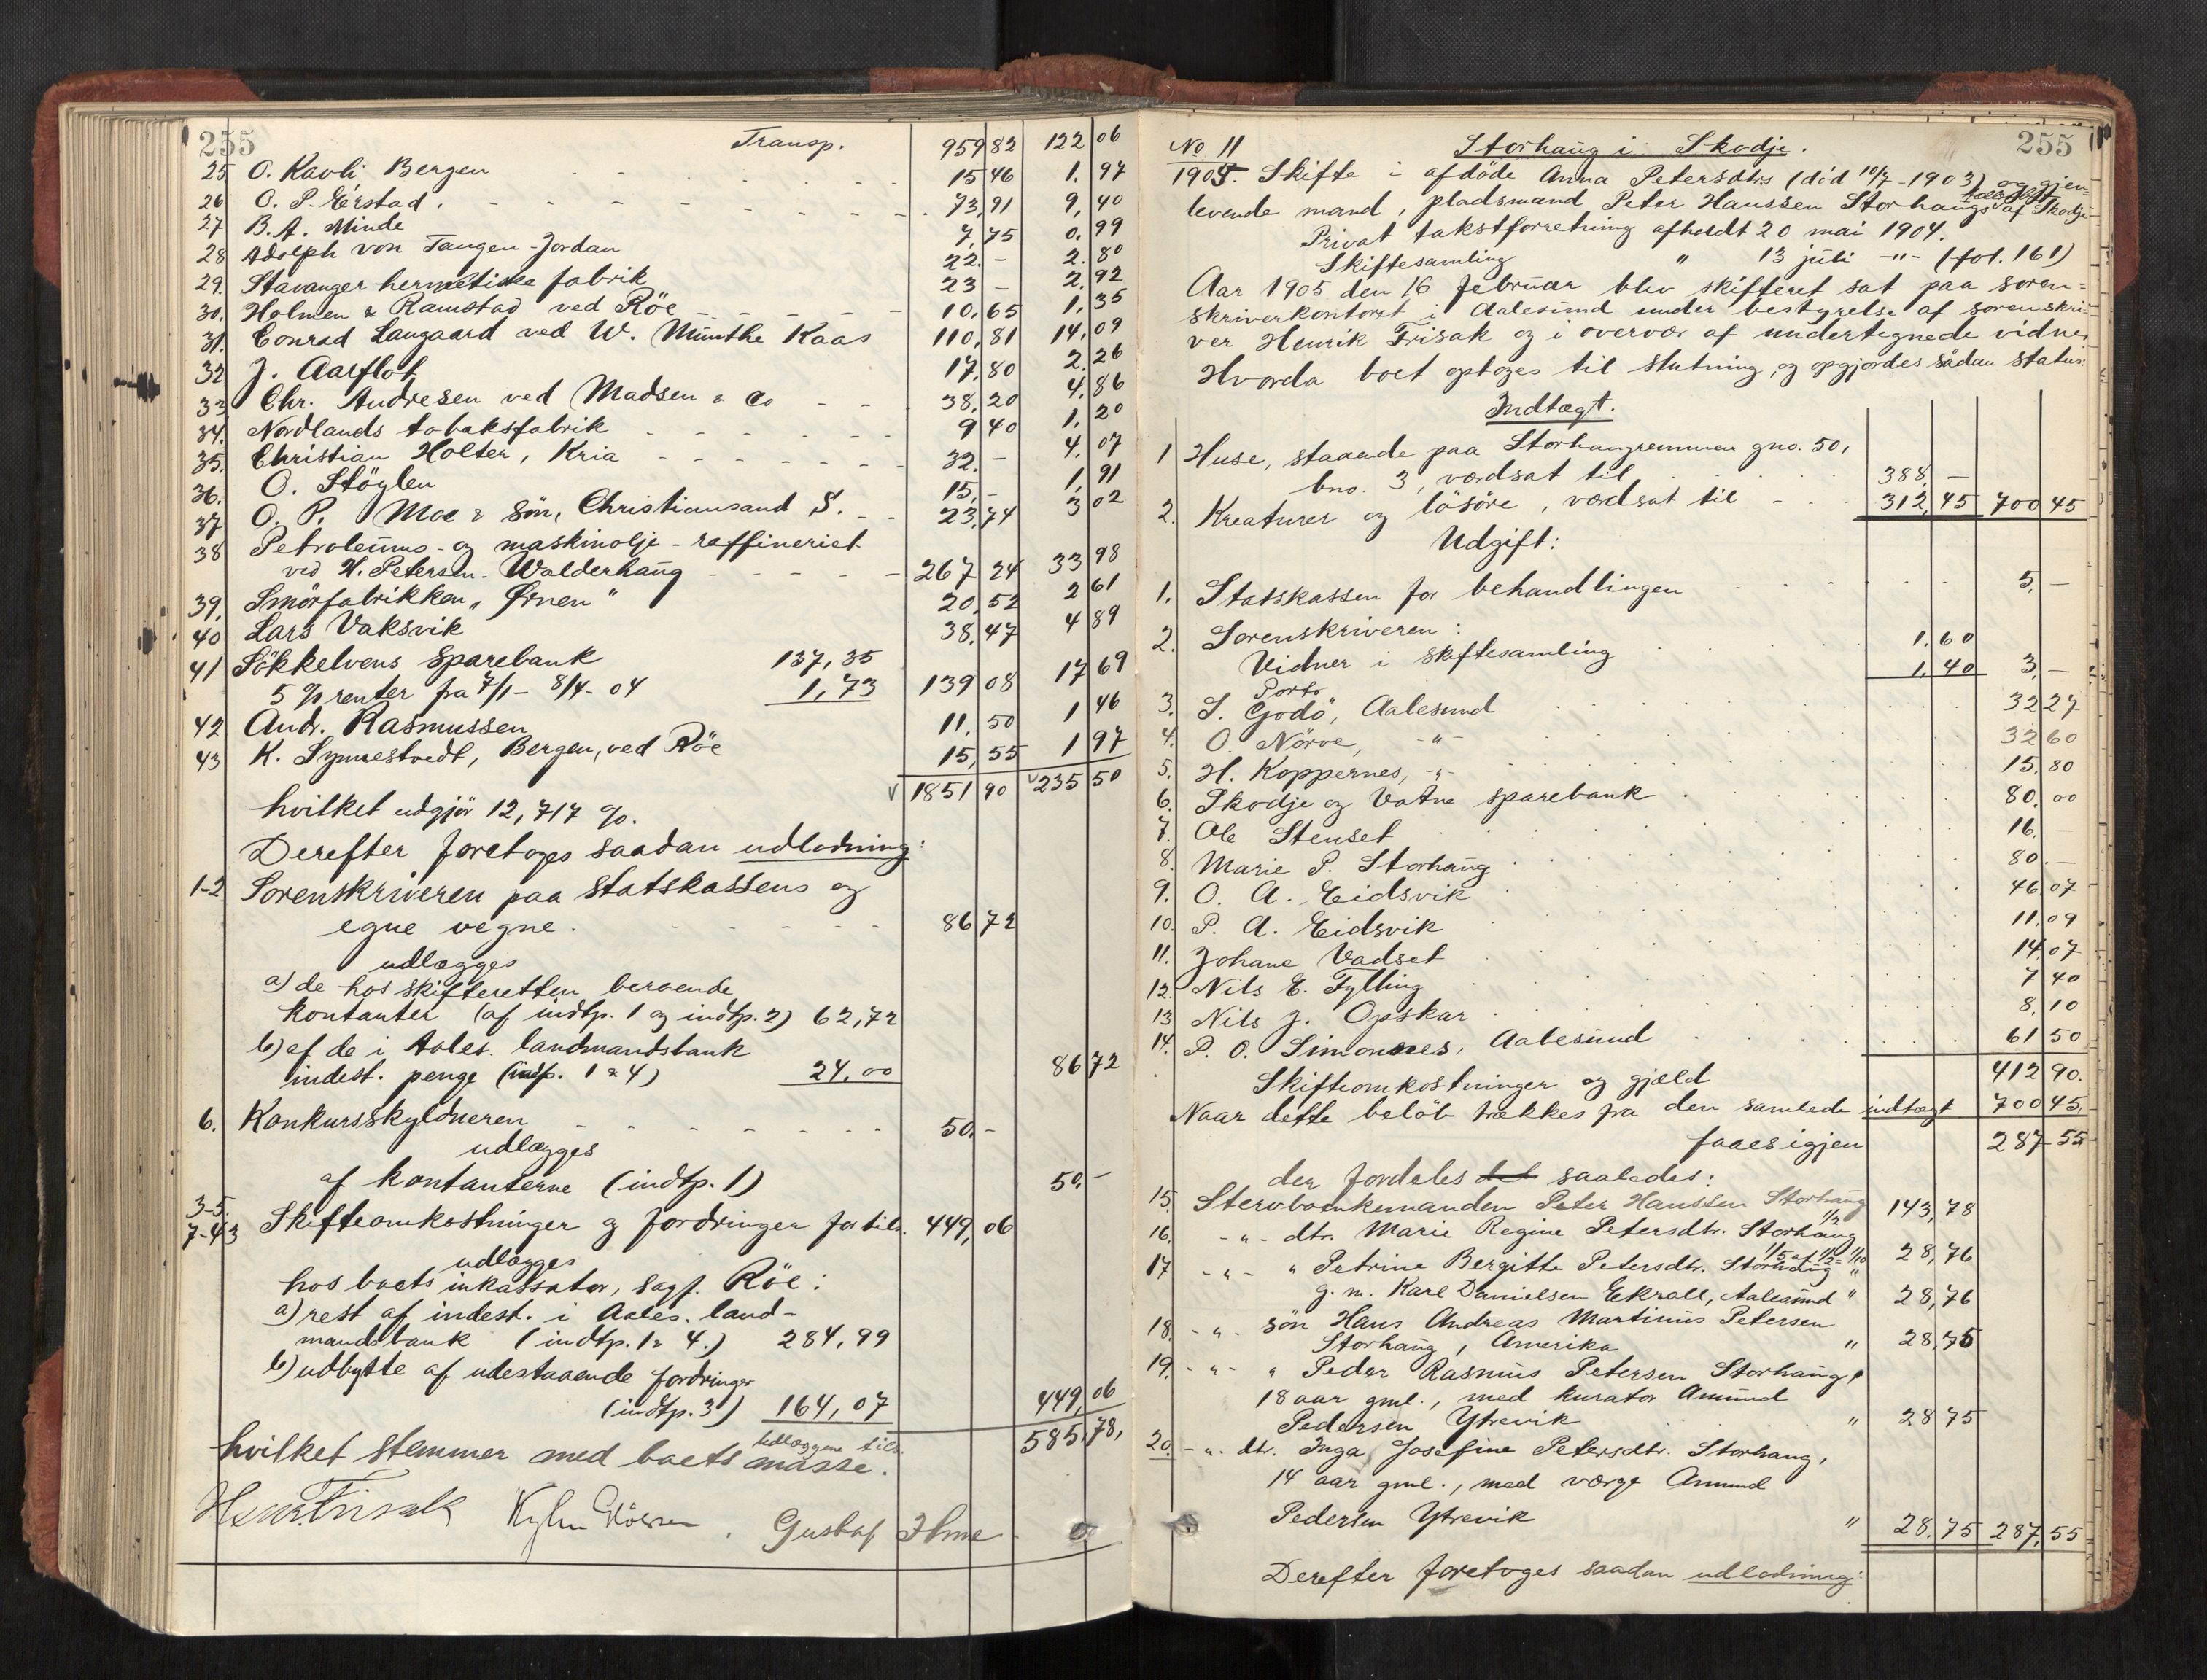 255
Transp. 959 82 122 06
25 O. Kavli Bergen 15 46 1. 97
26 O. P. Eerstad. 73, 91 9, 40
27 B. A. Minde 7, 75 0. 99
28 Adolph von Tangen-Jordan 22. - 2. 80
29. Stavanger hermetiske fabrik 23 - 2. 92
30. Holmen & Ramstad ved Röe 10, 65 1, 35
31. Conrad Langaard ved W. Münthe Kaas 110, 81 14, 09
32 J. Aarflot 17, 80 2. 26
33 Chr. Andresen ved Madsen & Co 38, 20 4, 86
34. Nordlands tobaksfabrik 9 40 1, 20
35. Christian Holter, Kria 32. - 4, 07
36. O. Stöylen 15, - 1, 91
37 O. P. Moe & Sön, Christiansand S. 23, 74 3 02
38 Petroleums- og maskinolje-raffineriet
ved H. Petersen. Walderhaug 267 24 33 98
39. Smörfabrikken "Ørnen" 20, 52 2 61
40 Lars Vaksvik 38, 47 4 89
41 Sökkelvens Sparebank 137, 35
5 % renter fra 7/1 - 8/4 - 04 1, 73 139 08 17 69
42 And. Rasmussen 11, 50 1 46
43 K. Synnestvedt, Bergen, ved Röe 15, 55 1 97
1851 90 235 50
hvilket udgjör 12, 717 %.
Derefter foretoges saadan udlodning:
1-2 Sorenskriveren paa Statskassens og
egne vegne. 86 72
udlægges
a) de hos skifteretten beroende
kontanter (af indtp. 1 og indtp. 2) 62, 72
b) af de i Aales. landmandsbank
indest. penge (indtp. 1 & 4) 24. 00 86 72
6. Konkursskyldneren 50. -
udlægges
af kontanterne (indtp. 1) 50. -
3-5.
7-43 Skifteomkostninger og fordringer fortils. 449, 06
udlægges
hos boets inkassator, sagf. Röe:
a) rest af indest. i Aales. land-
mandsbank (indtp. 1 & 4.) 284, 99
b) udbytte af udestaaende fordringer
(indtp. 3) 164, 07 449, 06
585. 78,
hvilket stemmer med boets udlæggene tils. masse.
Henr. Frisak Gustaf
255
No 11 Storhaug i Skodje.
1905. Skifte i afdöde Anna Petersdtrs (död 10/7 - 1903) og gjen-
levende mand, pladsmand Peter Hanssen Storhaugs af Skodje
Privat takstforretning afholdt 20 mai 1904.
Skiftesamling " 13 juli -"- (fol. 161)
Aar 1905 den 16 februar blev skifteret sat paa soren-
skriverkontoret i Aalesund under bestyrelse af sorenskri-
ver Henrik Frisak og i overvær af undertegnede vidner
Hvorda boet optoges til slutning, og opgjordes sådan status:
Indtægt.
1 Huse, staaende paa Storhaugremmen gno. 50,
bno. 3, værdsat til 388, -
2. Kreaturer og lösöre, værdsat til 312, 45 700 45
Udgift:
1. Statskassen for behandlingen 5, -
2. Sorenskriveren: 1. 60
Vidner i skiftesamling 1. 40 3, -
Porto
3. S. Godö, Aalesund 32 27
4. O. Nörve, -"- 32 60
5. H. Koppernes, -"- 15. 80
6. Skodje og Vatne sparebank 80, 00
7. Ole Stenset 16.
8. Marie P. Storhaug 80. -
9. O. A. Eidsvik 46, 07
10. P. A. Eidsvik 11. 09
11. Johane Vadset 14, 07
12. Nils E. Fylling 7 40
13 Nils J. Opskar 8, 10
14. P. O. Simonnes, Aalesund 61 50
Skifteomkostninger og gjæld 412 90.
Naar dette belöb trækkes fra den samlede indtægt 700 45,
faaes igjen 287 55
der fordeles saaledes:
15. Stervboenkemanden Peter Hanssen Storhaug 1/2 143, 78
16. -"- dtr. Marie Regine Petersdtr. Storhaug 1/5 af 1/2 = 1/10 28, 76
17 -"- " Petrine Bergitte Petersdtr. Storhaug "
g. m. Karl Danielsen Ekroll, Aalesund " 28, 76
18. -"- sön Hans Andreas Martinus Petersen
Storhaug, Amerika " 28, 75
19. -"- " Peder Rasmus Petersen Storhaug,
18 aar gml., med kurator Amund
Pedersen Ytrevik " 28 75
20. -"- dtr. Inga Josefine Petersdtr. Storhaug,
14 aar gml., med værge Amund
Pedersen Ytrevik " 28. 75 287, 55
Derefter foretoges saadan udlodning: